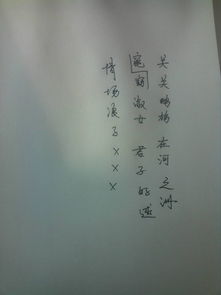 关关鸣鸠 在河之洲
窈窕淑女 君子好逑
情场浪子×××